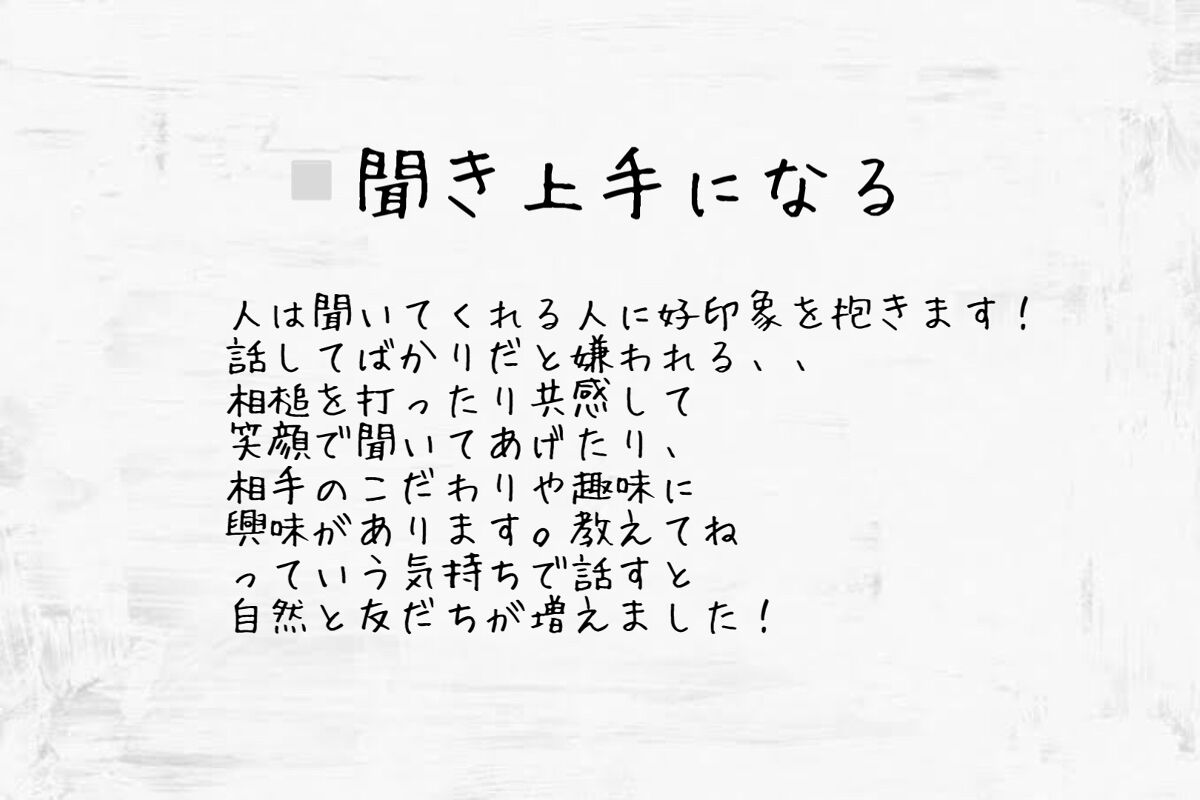 聞き上手になる
人は聞いてくれる人に好印象を抱きます!
話してばかりだと嫌われる、、
相槌を打ったり共感して
笑顔で聞いてあげたり、
相手のこだわりや趣味に
興味があります。教えてね
っていう気持ちで話すと
自然と友だちが増えました!